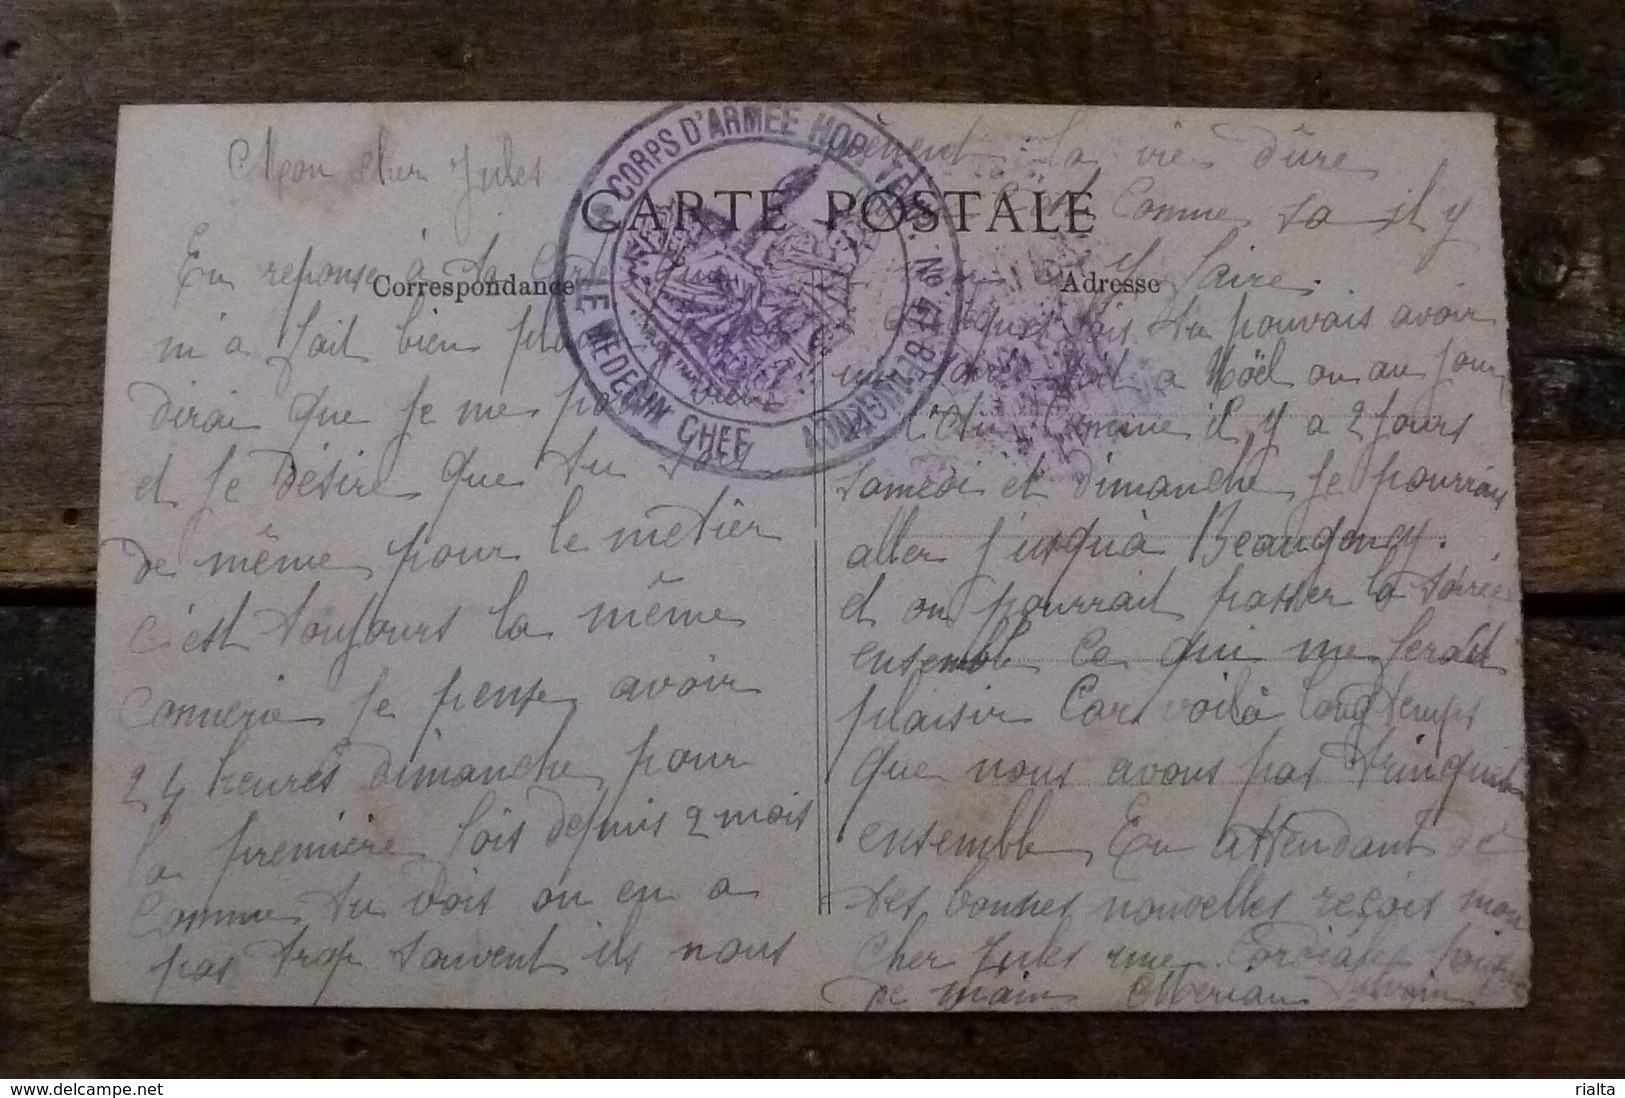 CARTE POSTALE
Correspondance
Adresse
CORPS D'ARMÉE HOP. TEMP. No 47
LE MEDECIN CHEF
Mon cher Jules
En reponse à ta Carte qui
m'a fait bien
dirai que je me
et je désire que tu
de même pour le metier
c'est toujours la même
connerie je pense avoir
24 heures dimanche pour
la première fois depuis 2 mois
Comme tu vois on en a
pas trop souvent ils nous
la vie dûre
Comme sa il y
y faire.
fois tu pouvais avoir
à Noël ou au jour
Comme il y a 2 jours
samedi et dimanche je pourrais
aller jusqu'à Beaugency.
et on pourrait passer la soirée
ensemble Ce qui me ferait
plaisir Car voilà longtemps
que nous avons pas trinquer
ensemble En attendant de
tes bonnes nouvelles reçois mon
cher Jules une Cordiale poignée
de main
delcampe.net
rialta